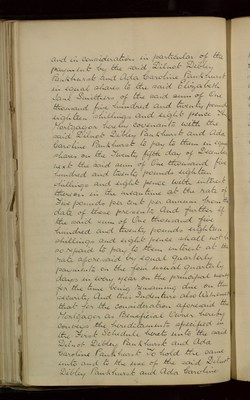 and in consideration in particular of the
payment by the said Pelnot Dibley
Pankhurst and Ada Caroline Pankhurst
in equal shares to the said Elizabeth
Jane Smithers of the said sum of One
thousand five hundred and twenty pounds
eighteen shillings and eight pence The
Mortgagor hereby covenants with the
said Dibley Pankhurst and Ada
Caroline Pankhurst to pay to them in equal
shares on the twenty fifth day of
next the said sum of One thousand five
hundred and twenty pounds eighteen
shillings and eight pence with interest
thereon in the meantime at the rate of
Five pounds per cent per annum from the
date of these presents And further if
the said sum of One thousand five
hundred and twenty pounds eighteen
shillings and eight pence shall not be
so repaid to pay to them interest at the
rate aforesaid by equal quarterly
payments on the four usual quarterly
days in every year on the principal sum
for the time being remaining due on this
security And this Indenture also witnesseth
that for the consideration aforesaid the
Mortgagor as Beneficial Owner hereby
conveys the hereditaments specified in
the First Schedule hereto unto the said
Dibley Pankhurst and Ada
Caroline Pankhurst To hold the same
unto and to the use of the said
Dibley Pankhurst and Ada Caroline